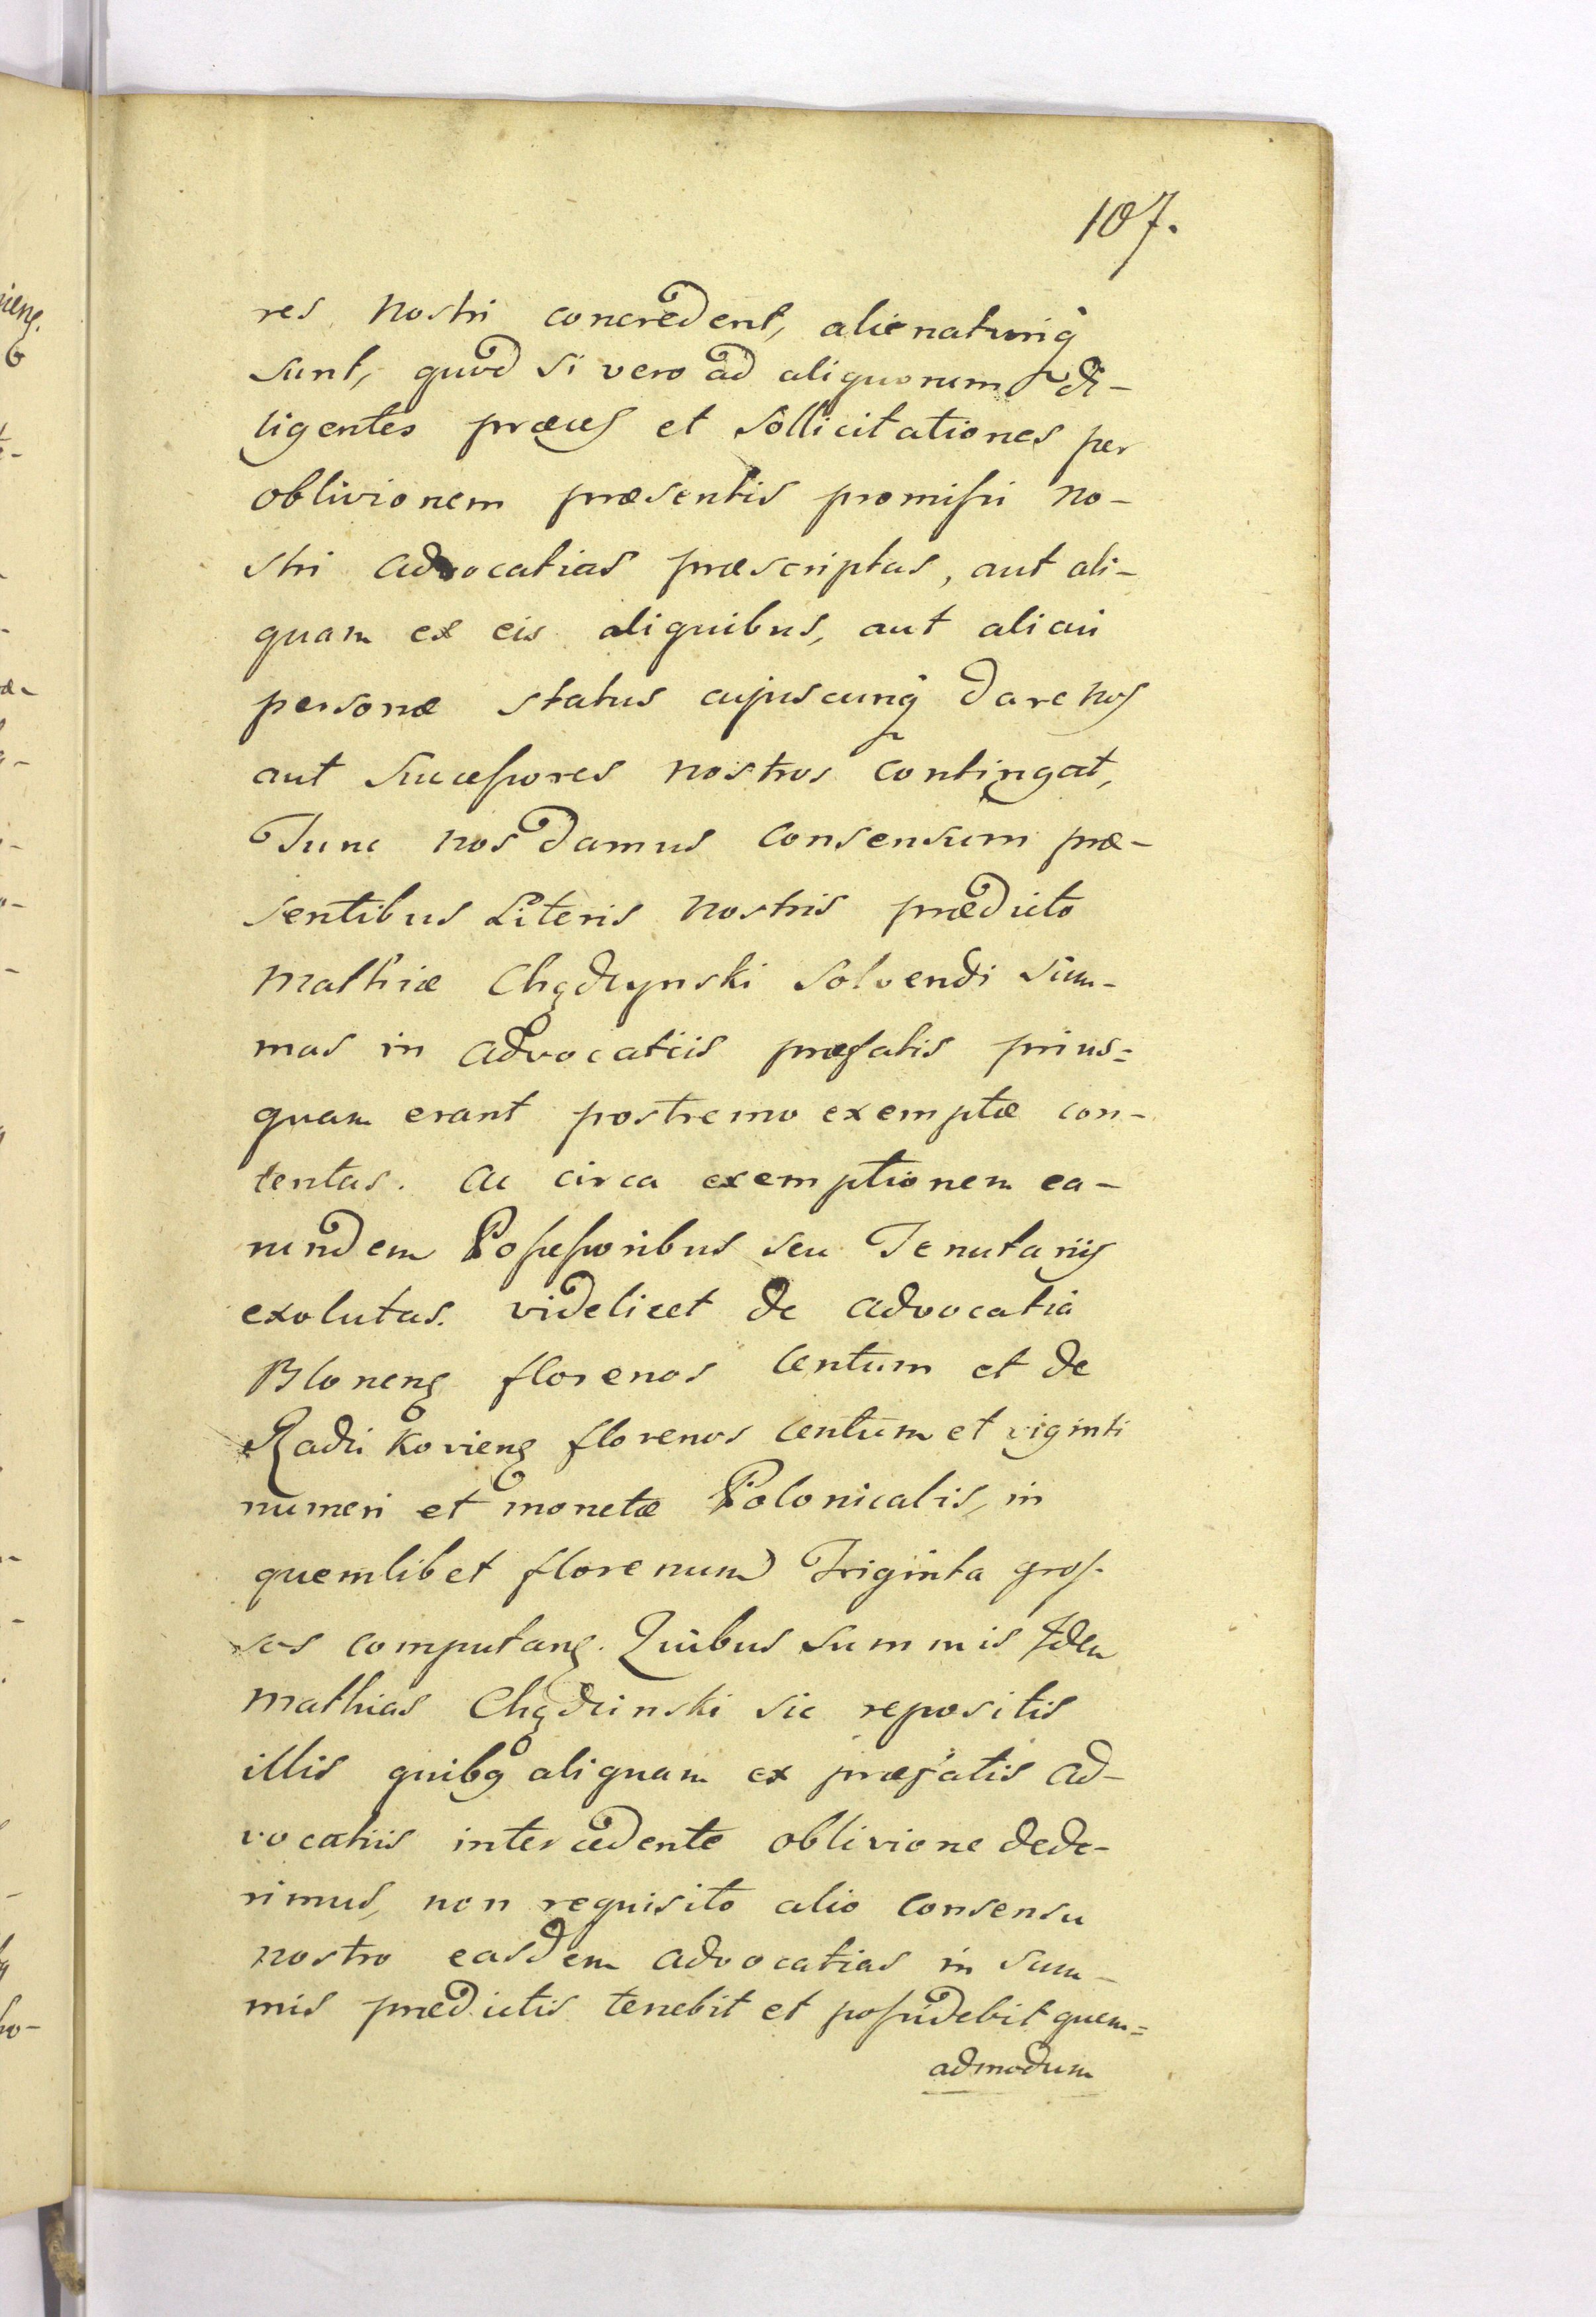 107.
res nostri concredent, alienaturiq
sunt, quod si vero ad aliquorum di-
ligentes præces et sollicitationes per
oblivionem præsentis promissi no-
stri advocatias præscriptas, aut ali-
quam ex eis aliquibus, aut alicui
personæ status cujuscunq dare nos
aut sucessores nostros contingat,
Tunc nos damus consensum præ-
sentibus Literis nostris prædicto
Mathiæ Chądzynski solvendi sum-
mas in advocatiis præfatis prius=
quam erant postremo exemptæ con-
tentas. ac circa exemptionem ea-
rundem Possessoribus seu Tenutariis
exolutas. videlicet de advocatia
Blonens florenos Centum et de
Radzikoviens florenos Centum et viginti
numeri et monetæ Polonicalis, in
quemlibet florenum Triginta gros-
sos computans. Quibus summis Idem
Mathias Chądzinski sic repositis
illis quibq aliquam ex præfatis ad-
vocatiis intercedente oblivione dede-
rimus, non requisito alio consensu
nostro easdem advocatias in sum-
mis prædictis tenebit et possidebit quem=
admodum